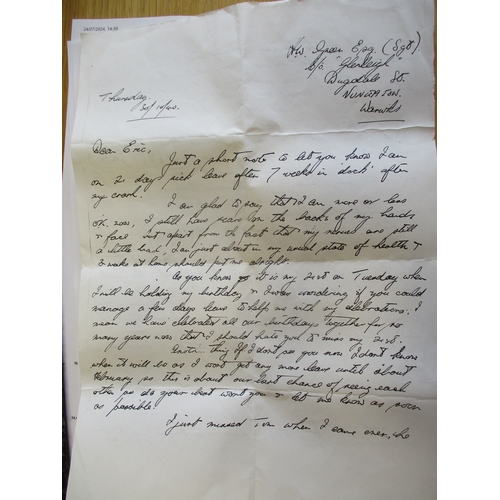 24/07/2024, 14:59
H.W. Green Esq (Sgt).
c/o "Glenleigh"
Dugdale St.
NUNEATON.
Warwks
Thursday.
31/10/40.
Dear Eric,
Just a short note to let you know I am
on 21 days sick leave after 7 weeks in dock after
my crash.
I am glad to say that I am more or less
ok. now, I still have scars on the backs of my hands
& face but apart from the fact that my nerves are still
a little bad I am just about in my usual state of health &
3 weeks at home should put me alright.
As you know it is my 21st on Tuesday when
I will be holding my birthday & I was wondering if you could
manage a few days leave to help me with my celebrations. I
mean we have celebrated all our birthdays together for so
many years now that I should hate you to miss my 21st.
Another thing if I don't see you now I don't know
when it will be as I wont get any more leave until about
February so this is about our last chance of seeing each
other so do your best wont you & let me know as soon
as possible.
I just missed when I came over, he